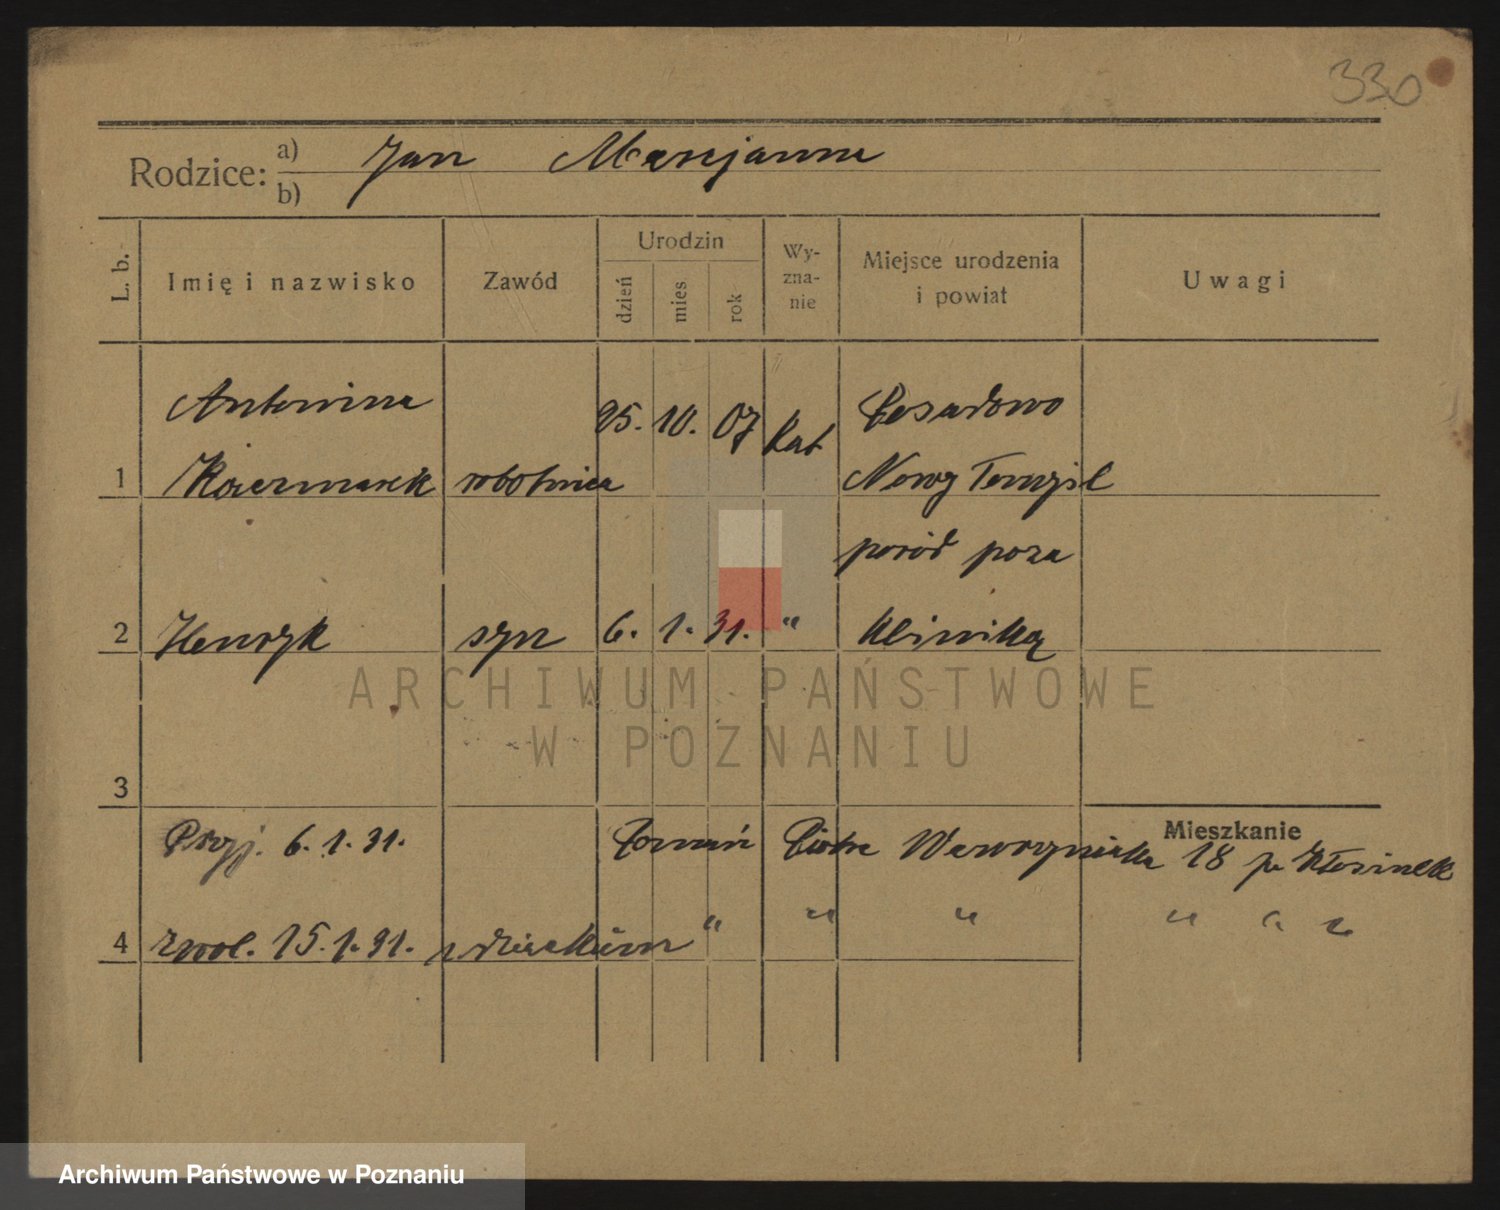 330
Rodzice: a) Jan Marjanna
b)
L. b. Imię i nazwisko Zawód Urodzin dzień mies. rok Wy-zna-nie Miejsce urodzenia i powiat Uwagi
Antonina 25. 10. 07 kat Posadowo
1 Kaczmarek robotnica Nowy Tomyśl
poród poza
2 Henryk syn 6. 1. 31. " kliniką
ARCHIWUM PAŃSTWOWE
W POZNANIU
3
Mieszkanie
Przyj. 6. 1. 31. Poznań Piotra Wawrzyniaka 18 Kłosinek
4 zwol. 15. 1. 31. z dzieckiem " " " " " "
Archiwum Państwowe w Poznaniu